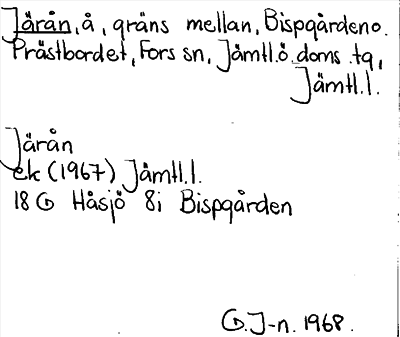 Järån, å, gräns mellan, Bispgården o.
Prästbordet, Fors sn, Jämtl.ö. doms.tg,
Jämtl.l.
Järån
ek (1967) Jämtl.l.
18 G Håsjö 8i Bispgården
G.J-n. 1968.